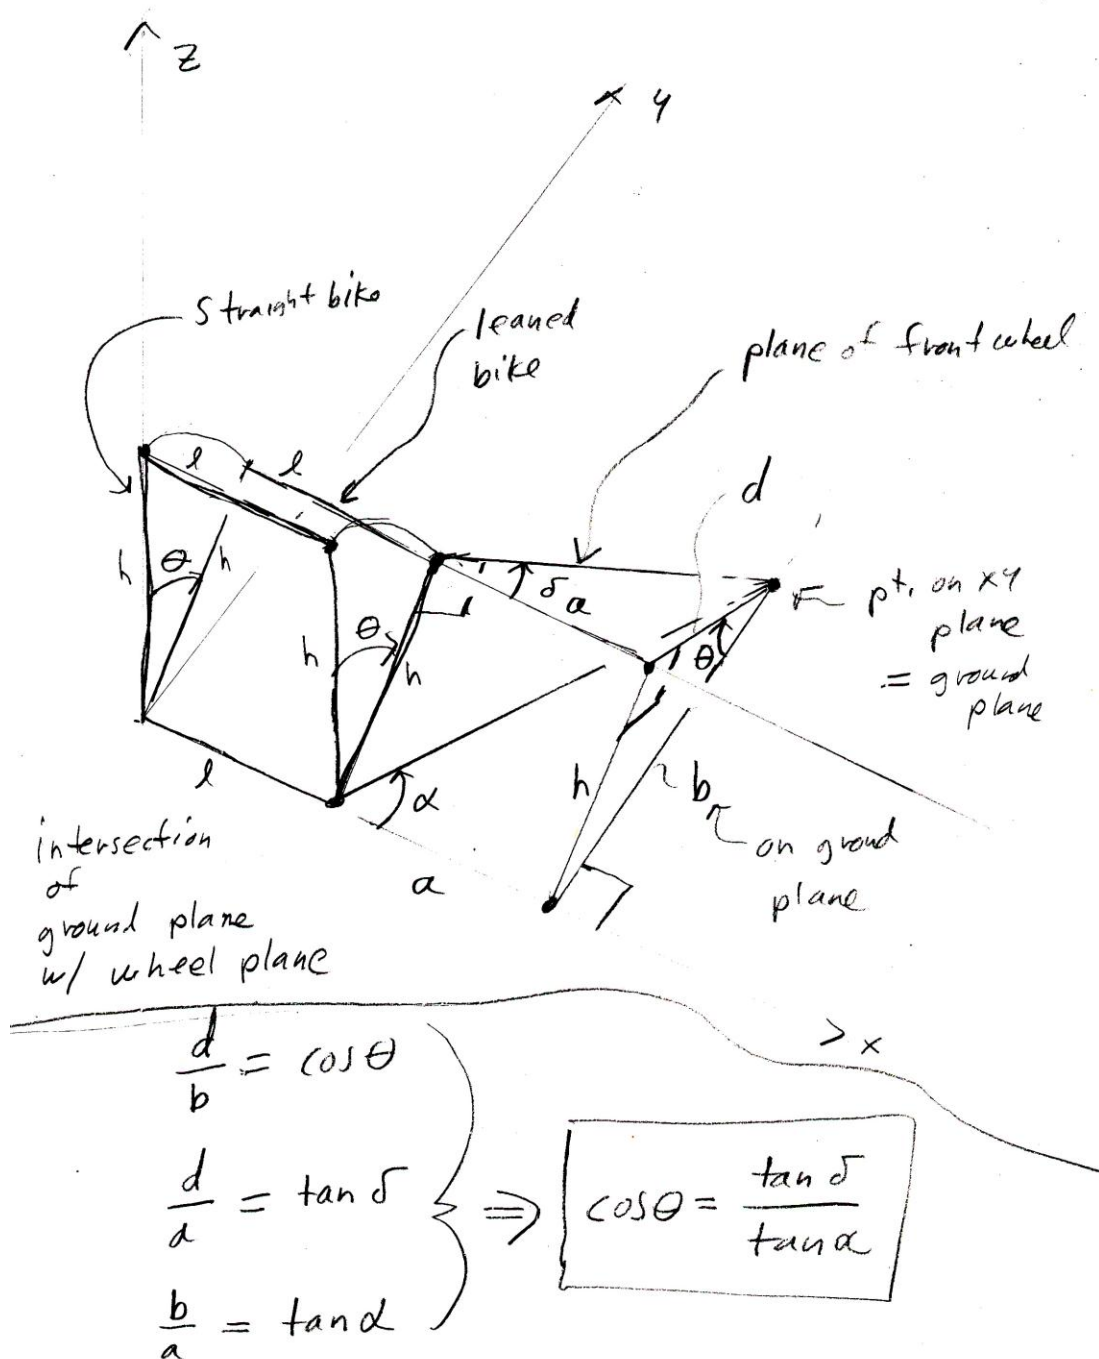 z
y
straight bike
leaned
bike
plane of front wheel
l
l
d
h
θ
h
δ
a
pt. on xy
plane
= ground
plane
h
θ
h
θ
l
α
h
b
on ground
plane
a
intersection
of
ground plane
w/ wheel plane
x
d/b = cosθ
d/a = tan δ
b/a = tan α
⇒ cosθ = tan δ / tan α